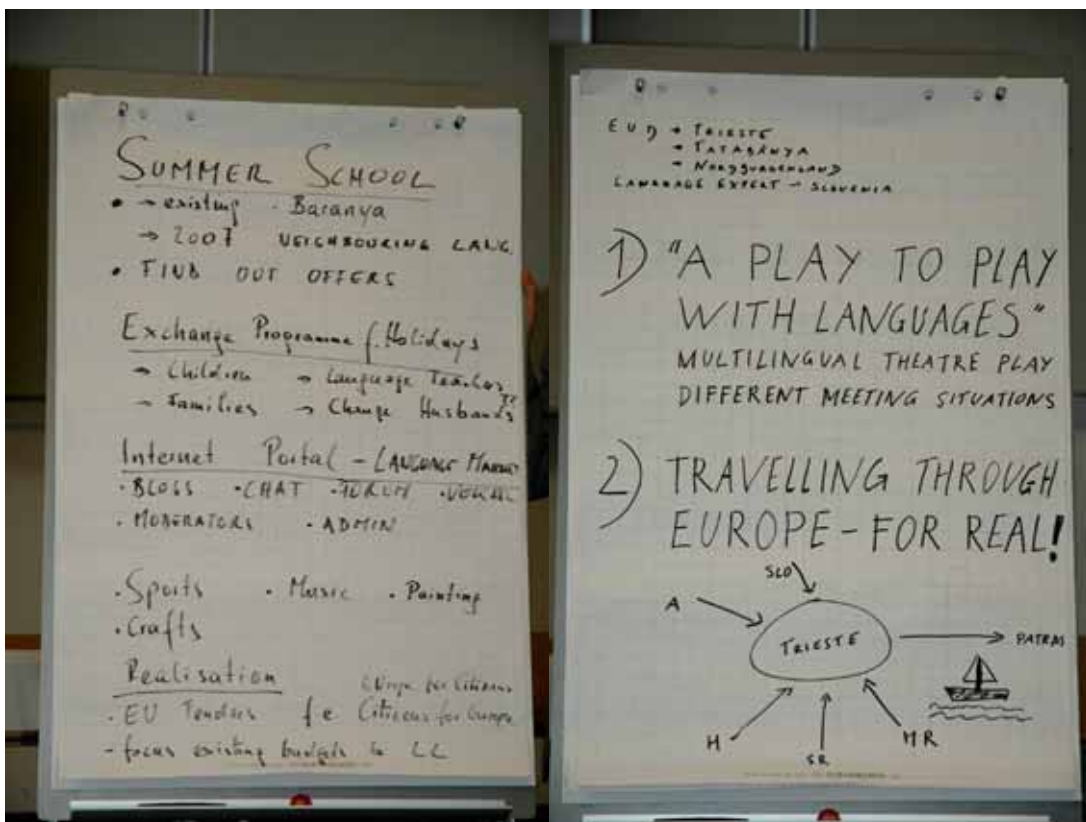 SUMMER SCHOOL
• → existing · Baranya
→ 2007 NEIGHBOURING LANG.
• FIND OUT OFFERS
Exchange Programme f. Holidays
→ Children → Language Teacher
→ Families → Change Husbands
Internet Portal - LANGUAGE
· BLOGS · CHAT · FORUM
· MODERATORS · ADMIN
· Sports · Music · Painting
· Crafts
Realisation
Europe for Citizens
· EU Tenders f e Citizens for Europe
- focus existing budgets to LL
EUD → TRIESTE
→ TATABÁNYA
→ NORDBURGENLAND
LANGUAGE EXPERT - SLOVENIA
1) "A PLAY TO PLAY
WITH LANGUAGES"
MULTILINGUAL THEATRE PLAY
DIFFERENT MEETING SITUATIONS
2) TRAVELLING THROUGH
EUROPE - FOR REAL!
SLO
A
TRIESTE
PATRAS
H
SR
MR